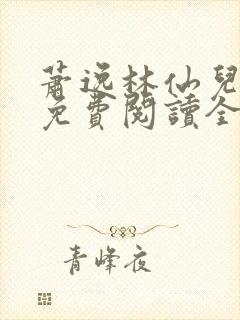 蕭逸林仙兒
免費閱讀全
青峰夜